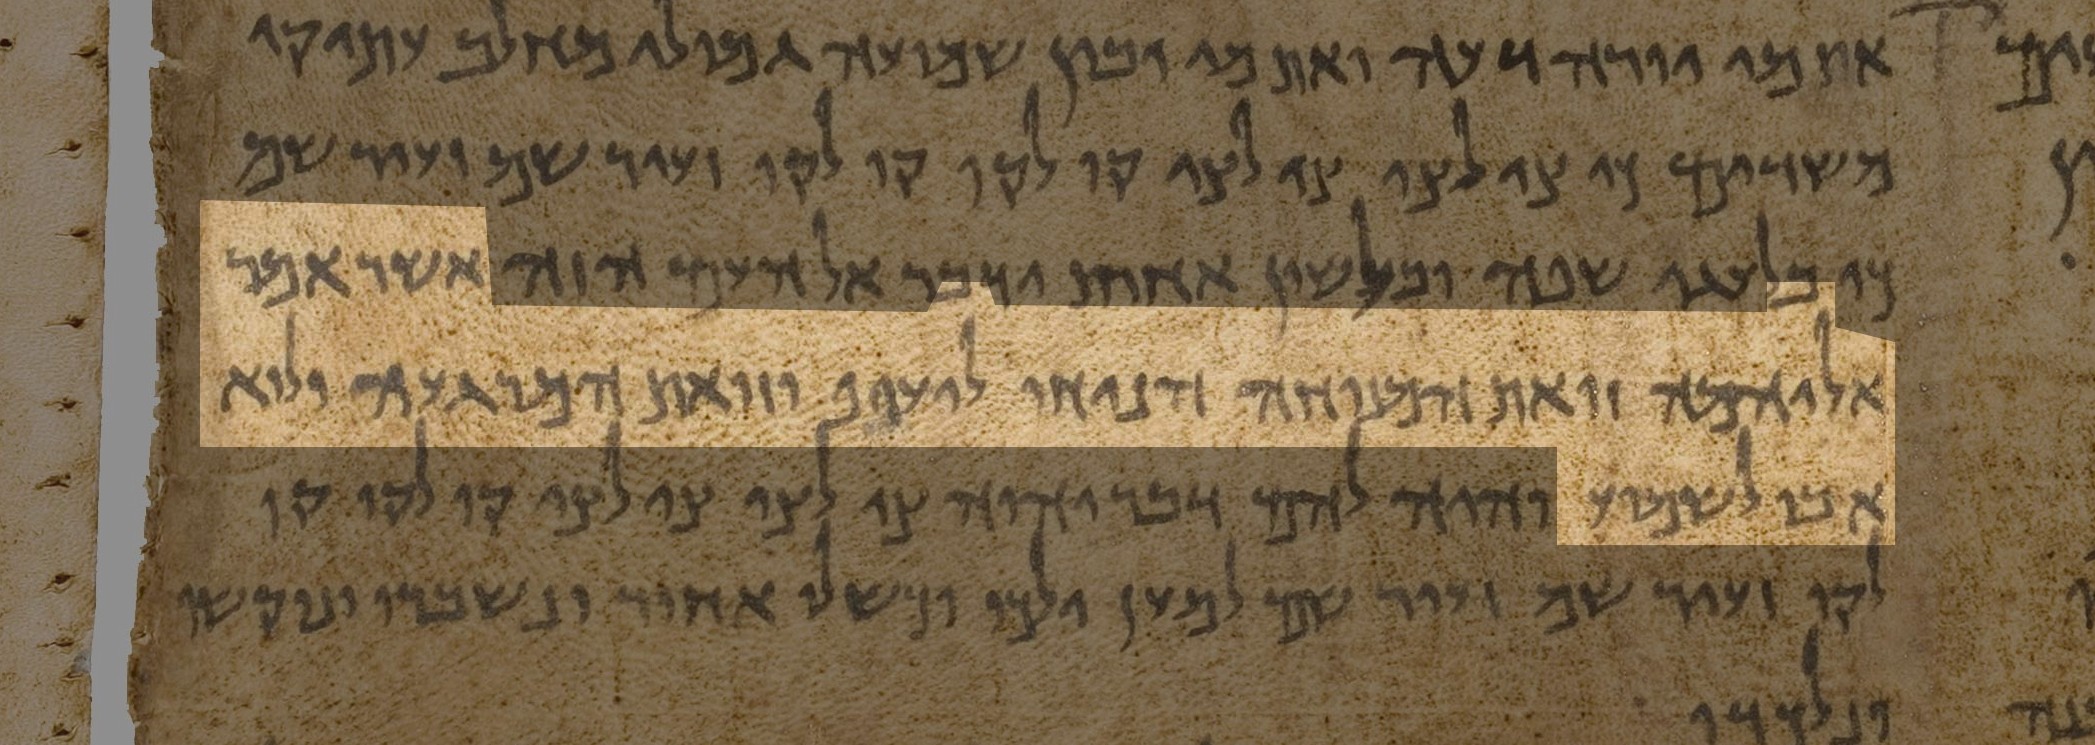 את מי יורה דעה ואת מי יבין שמועה גמולי מחלב עתיקי
משדים כי צו לצו צו לצו קו לקו קו לקו ועיר שם ועיר שם
כי בלעגי שפה ובלשון אחרת ידבר אל העם הזה אשר אמר
אליהמה זואת המנוחה הניחו לעיף וזואת המרגעה ולוא
אבו לשמוע והיה להם דבר יהוה צו לצו צו לצו קו לקו קו
לקו ועיר שם ועיר שם למען ילכו וכשלו אחור ונשברו ונוקשו
ונלכדו